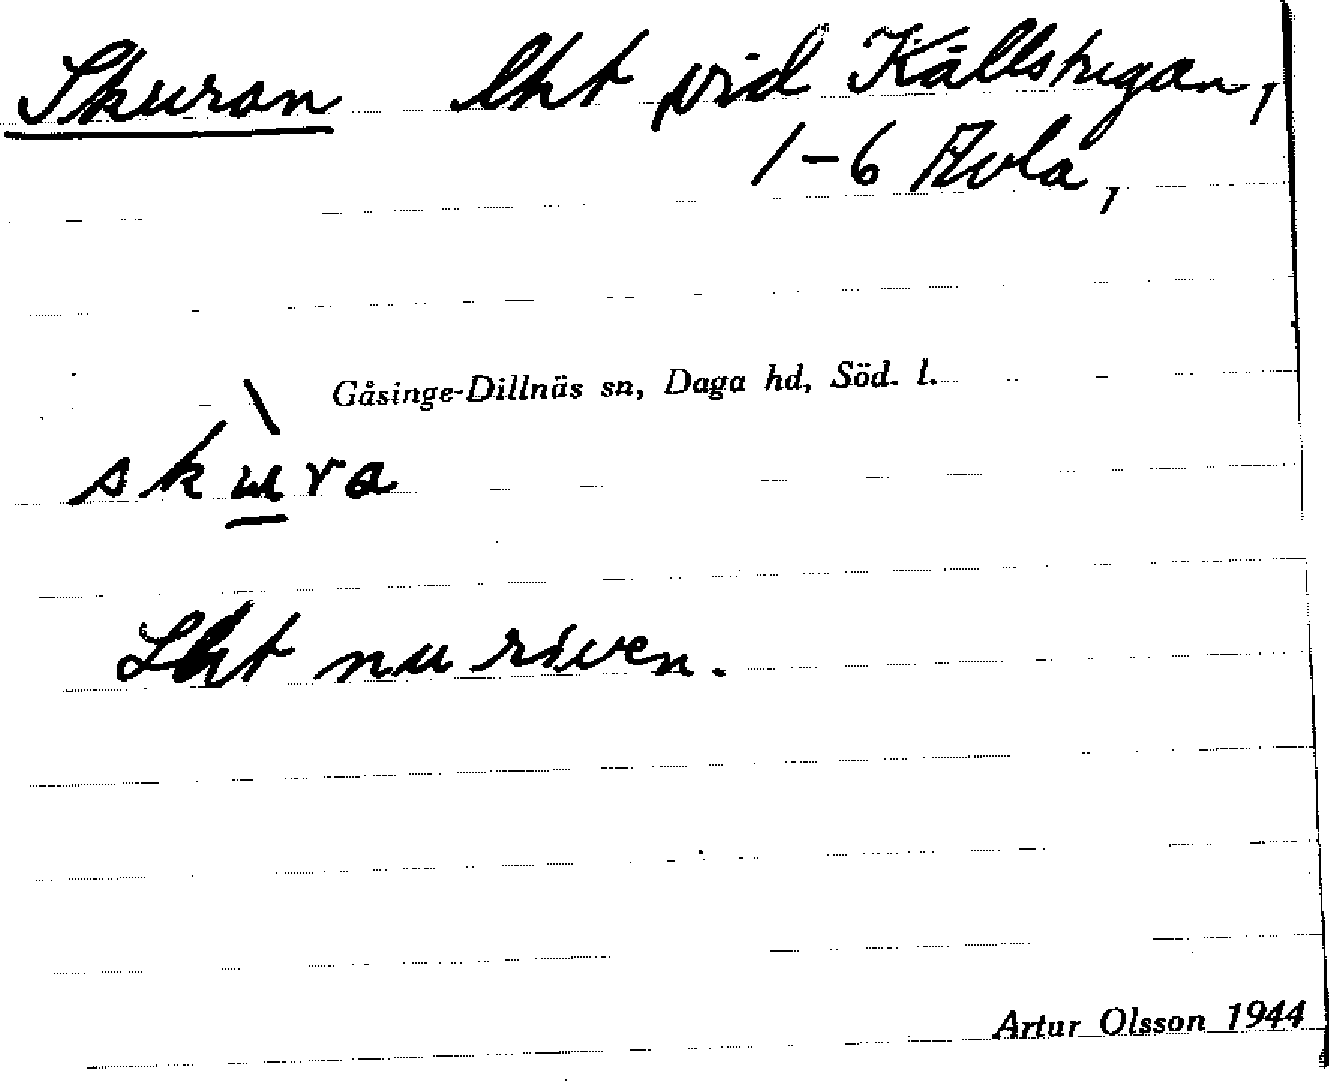 Skuran lht vid Källstugan,
1-6 Åvla,
Gåsinge-Dillnäs sn, Daga hd, Söd. l.
skùra
Lht nu riven.
Artur Olsson 1944